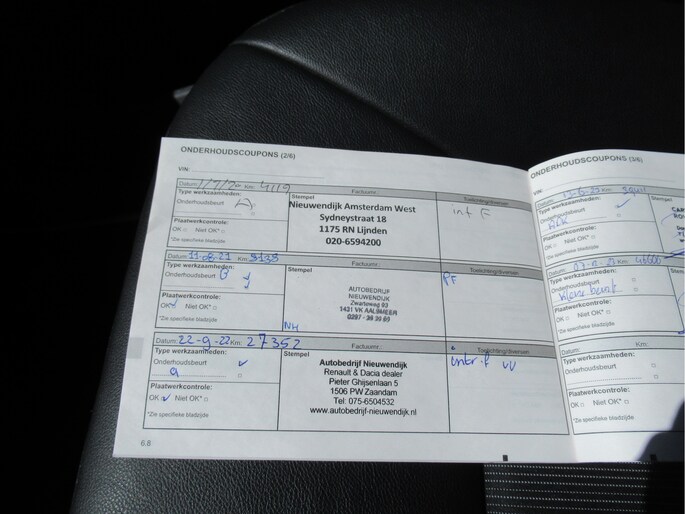 ONDERHOUDSCOUPONS (2/6)
VIN:
Datum: 1/7/20 Km: 4119
Factuurnr.:
Type werkzaamheden:
Stempel
Toelichting/diversen
Onderhoudsbeurt A
Nieuwendijk Amsterdam West
Sydneystraat 18
1175 RN Lijnden
020-6594200
int F
Plaatwerkcontrole:
OK Niet OK*
*Zie specifieke bladzijde
Datum: 11-08-21 Km: 8138
Factuurnr.:
Type werkzaamheden:
Stempel
Toelichting/diversen
Onderhoudsbeurt
AUTOBEDRIJF
NIEUWENDIJK
Zwarteweg 93
1431 VK AALSMEER
PF
Plaatwerkcontrole:
OK Niet OK*
*Zie specifieke bladzijde
NH
Datum: 22-9-22 Km: 27352
Factuurnr.:
Type werkzaamheden:
Stempel
Toelichting/diversen
Onderhoudsbeurt
Autobedrijf Nieuwendijk
Renault & Dacia dealer
Pieter Ghijsenlaan 5
1506 PW Zaandam
Tel: 075-6504532
www.autobedrijf-nieuwendijk.nl
Plaatwerkcontrole:
OK Niet OK*
*Zie specifieke bladzijde
6.8
ONDERHOUDSCOUPONS (3/6)
VIN:
Datum:
Km:
Type werkzaamheden:
Stempel
Onderhoudsbeurt
Plaatwerkcontrole:
OK Niet OK*
*Zie specifieke bladzijde
Datum:
Km:
Type werkzaamheden:
Stempel
Onderhoudsbeurt
Plaatwerkcontrole:
OK Niet OK*
*Zie specifieke bladzijde
Datum:
Km:
Type werkzaamheden:
Stempel
Onderhoudsbeurt
Plaatwerkcontrole:
OK Niet OK*
*Zie specifieke bladzijde